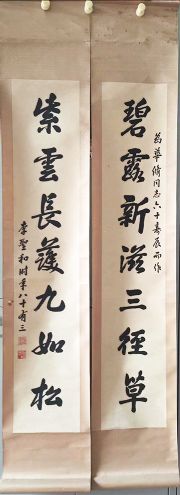 碧露新滋三徑草
為華脩同志六十壽辰而作
紫雲長護九如松
李聖和時年八十有三